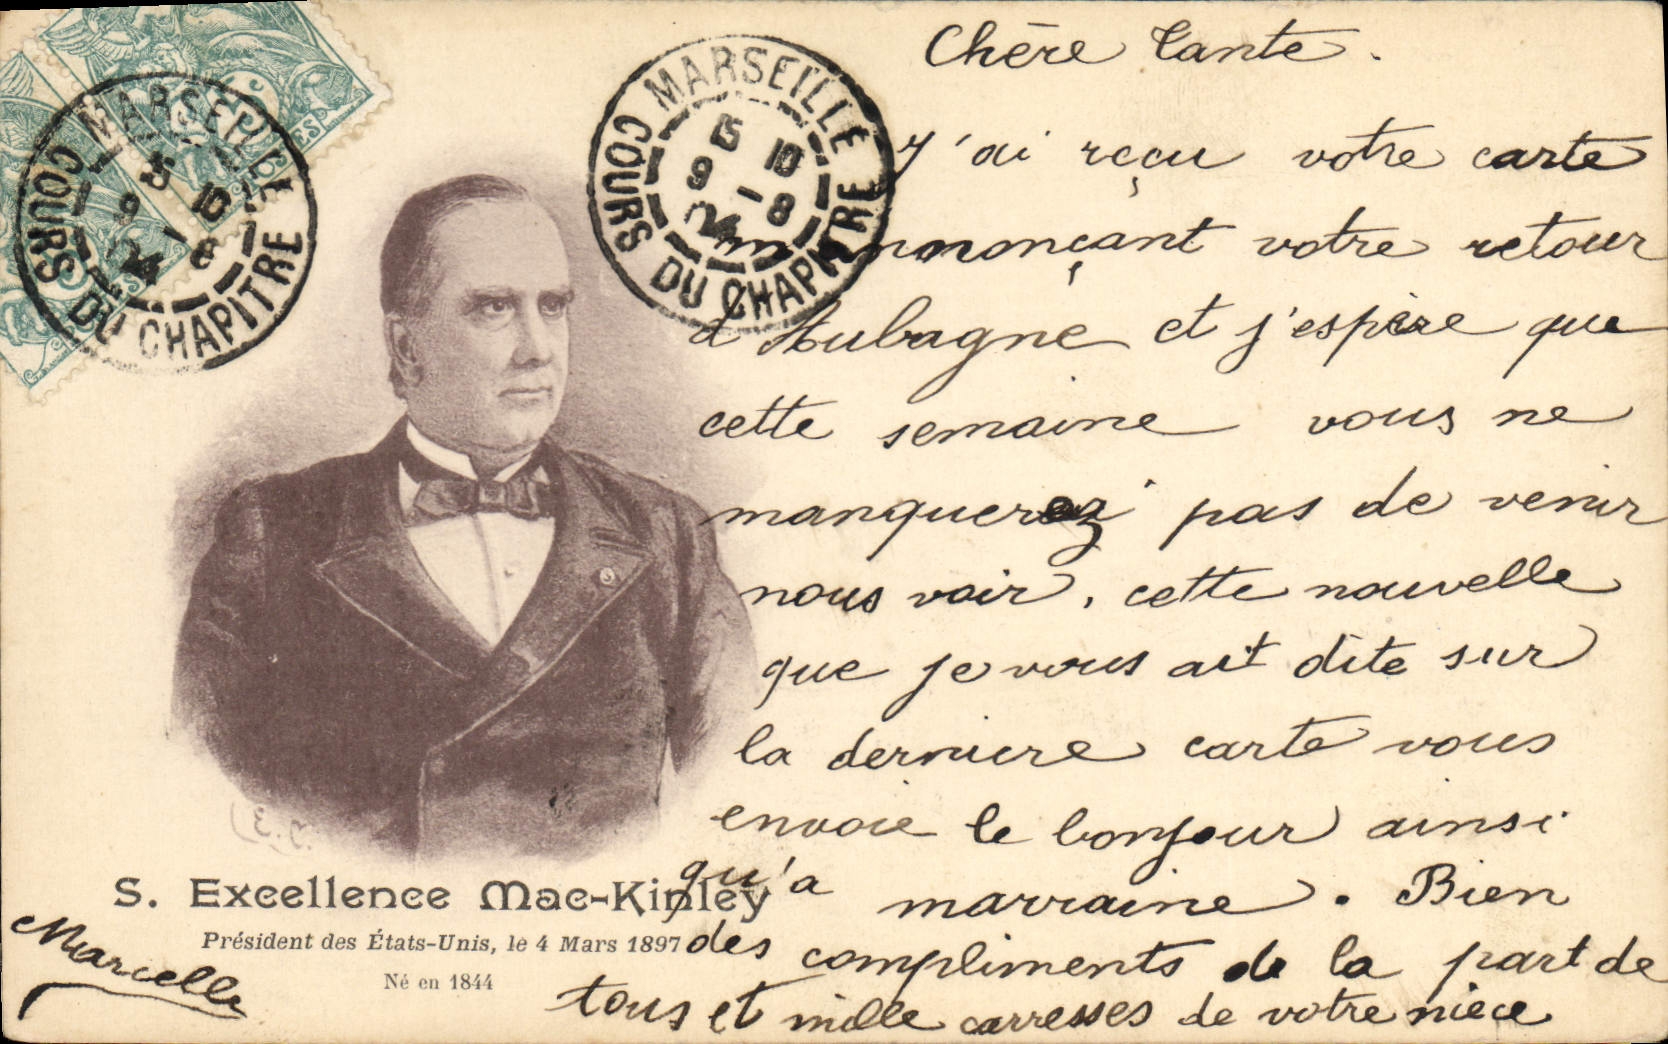 MARSEILLE
COURS DU CHAPITRE
10
9 -8
04
MARSEILLE
COURS DU CHAPITRE
15 10
9 -8
04
Chère Tante.
J'ai reçu votre carte
m'annonçant votre retour
d'Aubagne et j'espère que
cette semaine vous ne
manquerez pas de venir
nous voir, cette nouvelle
que je vous ait dite sur
la derniere carte vous
envoie le bonjour ainsi
qu'a marraine. Bien
des compliments de la part de
tous et mille carresses de votre niece
Marcelle
S. Excellence Mac-Kinley
Président des États-Unis, le 4 Mars 1897
Né en 1844